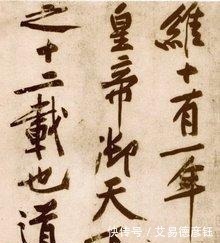 維十有一年
皇帝御天
之十二載也道
快传号/艾易德彦钰